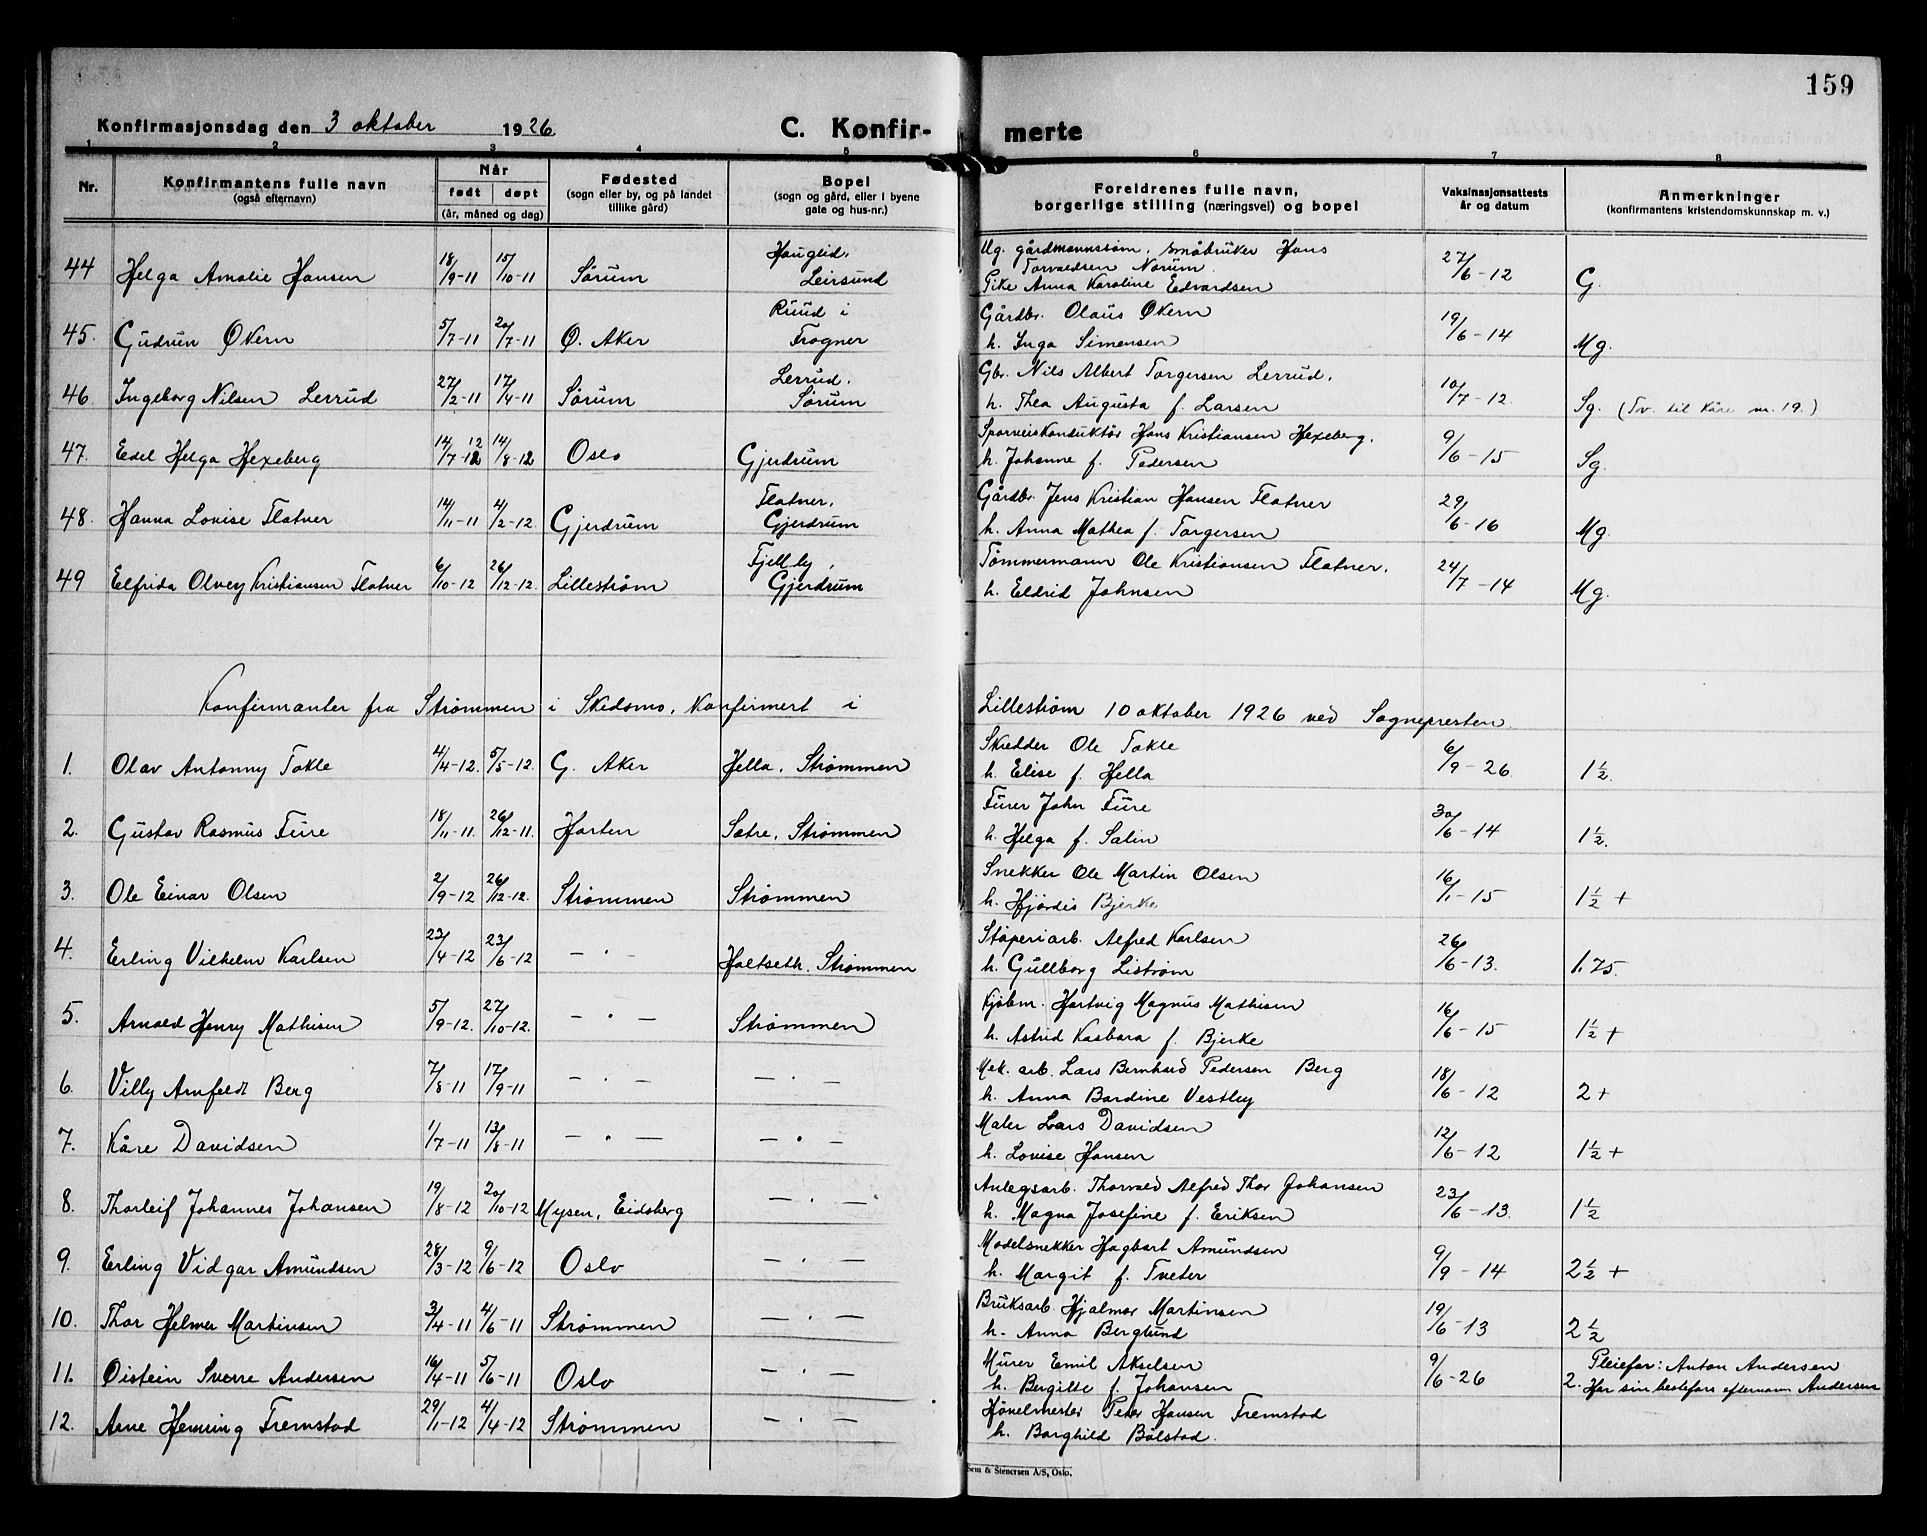 159
Konfirmasjonsdag den 3 oktober 1926 C. Konfir- merte
1 2 3 4 5 6 7 8
Nr.
Konfirmantens fulle navn
(også efternavn)
Når
født døpt
(år, måned og dag)
Fødested
(sogn eller by, og på landet
tillike gård)
Bopel
(sogn og gård, eller i byene
gate og hus-nr.)
Foreldrenes fulle navn,
borgerlige stilling (næringsvei) og bopel
Vaksinasjonsattests
år og datum
Anmerkninger
(konfirmantens kristendomskunnskap m. v.)
44 Helga Amalie Hansen 18/9-11 15/10-11 Sørum Hauglid, Leirsund
Ug. gårdmannssøn, småbruker Hans
Torvaldsen Norum.
Pike Anna Karoline Edvardsen 27/6-12 G.
45. Gudrun Økern 5/7-11 20/7-11 Ø. Aker Ruud i Frogner
Gårdbr. Olaus Økern
h. Inga Simensen 19/6-14 Mg.
46 Ingeborg Nilsen Lerrud 27/2-11 17/4-11 Sørum Lerrud, Sørum
Gbr. Nils Albert Torgersen Lerrud,
h. Thea Augusta f. Larsen 10/7-12 Sg. (Tv. til Kåre nr. 19.)
47. Edel Helga Hexeberg 14/7-12 12 14/8-12 Oslo Gjerdrum
Sporveiskonduktør Hans Kristiansen Hexeberg,
h. Johanne f. Pedersen 9/6-15 Sg.
48. Hanna Lovise Flatner 14/11-11 4/2-12. Gjerdrum Flatner, Gjerdrum
Gårdbr. Jens Kristian Hansen Flatner
h. Anna Mathea f. Torgersen 29/6-16 Mg.
49 Elfrida Olvey Kristiansen Flatner 6/10-12 26/12-12. Lillestrøm Fjellby, Gjerdrum
Tømmermann Ole Kristiansen Flatner,
h. Eldrid Johnsen 24/7-14 Mg.
Konfirmanter fra Strømmen i Skedsmo, Konfirmert i Lillestrøm 10 oktober 1926 ved Sognepresten.
1. Olav Antonny Tokle 4/4-12. 5/5-12. G. Aker Hella, Strømmen
Skredder Ole Tokle
h. Elise f. Hella 6/9-26. 1½.
2. Gustav Rasmus Fure 18/11-11. 26/12-11. Horten Sætre, Strømmen
Furer John Fure
h. Helga f. Salin 30/6-14 1½.
3. Ole Einar Olsen 2/9-12 26/12-12. Strømmen Strømmen
Snekker Ole Martin Olsen
h. Hjørdis Bjerke 16/1-15 1½ +
4. Erling Vilhelm Karlsen 23/4-12 23/6-12 — " — Holtseth, Strømmen
Støperiarb. Alfred Karlsen
h. Gullborg Liström 26/6-13. 1.75.
5. Arnold Henry Mathisen 5/9-12. 27/10-12. — " — Strømmen
Kjøbm. Hartvig Magnus Mathisen
h. Astrid Kasbara f. Bjerke 16/6-15 1½ +
6. Villy Arnfeldt Berg 7/8-11 17/9-11 — " — — " —
Mek. arb. Lars Bernhard Pedersen Berg
h. Anna Bardine Vestby 18/6-12 2+
7. Kåre Davidsen 1/7-11 13/8-11 — " — — " —
Maler Lars Davidsen
h. Lovise Hansen 12/6-12 1½ +
8. Thorleif Johannes Johansen 19/8-12 20/10-12 Mysen, Eidsberg — " —
Anlegsarb. Thorvald Alfred Thor Johansen
h. Magna Josefine f. Eriksen 23/6-13. 1½
9. Erling Vidgar Amundsen 28/3-12 9/6-12 Oslo — " —
Modelsnekker Hagbart Amundsen
h. Margit f. Tveter 9/9-14 2½ +
10. Thor Helmer Martinsen 3/4-11 4/6-11 Strømmen — " —
Bruksarb. Hjalmar Martinsen
h. Anna Berglund 19/6-13 2½
11. Øistein Sverre Andersen 16/4-11 5/6-11 Oslo — " —
Murer Emil Akselsen
h. Bergitte f. Johansen 9/6-26 2. Pleiefar: Anton Andersen
Har sin bestefars efternavn Andersen
12. Arne Henning Fremstad 29/1-12 4/4-12 Strømmen — " —
Høvelmester Peter Hansen Fremstad
h. Borghild Bålstad.
Sem & Stenersen A/S, Oslo.